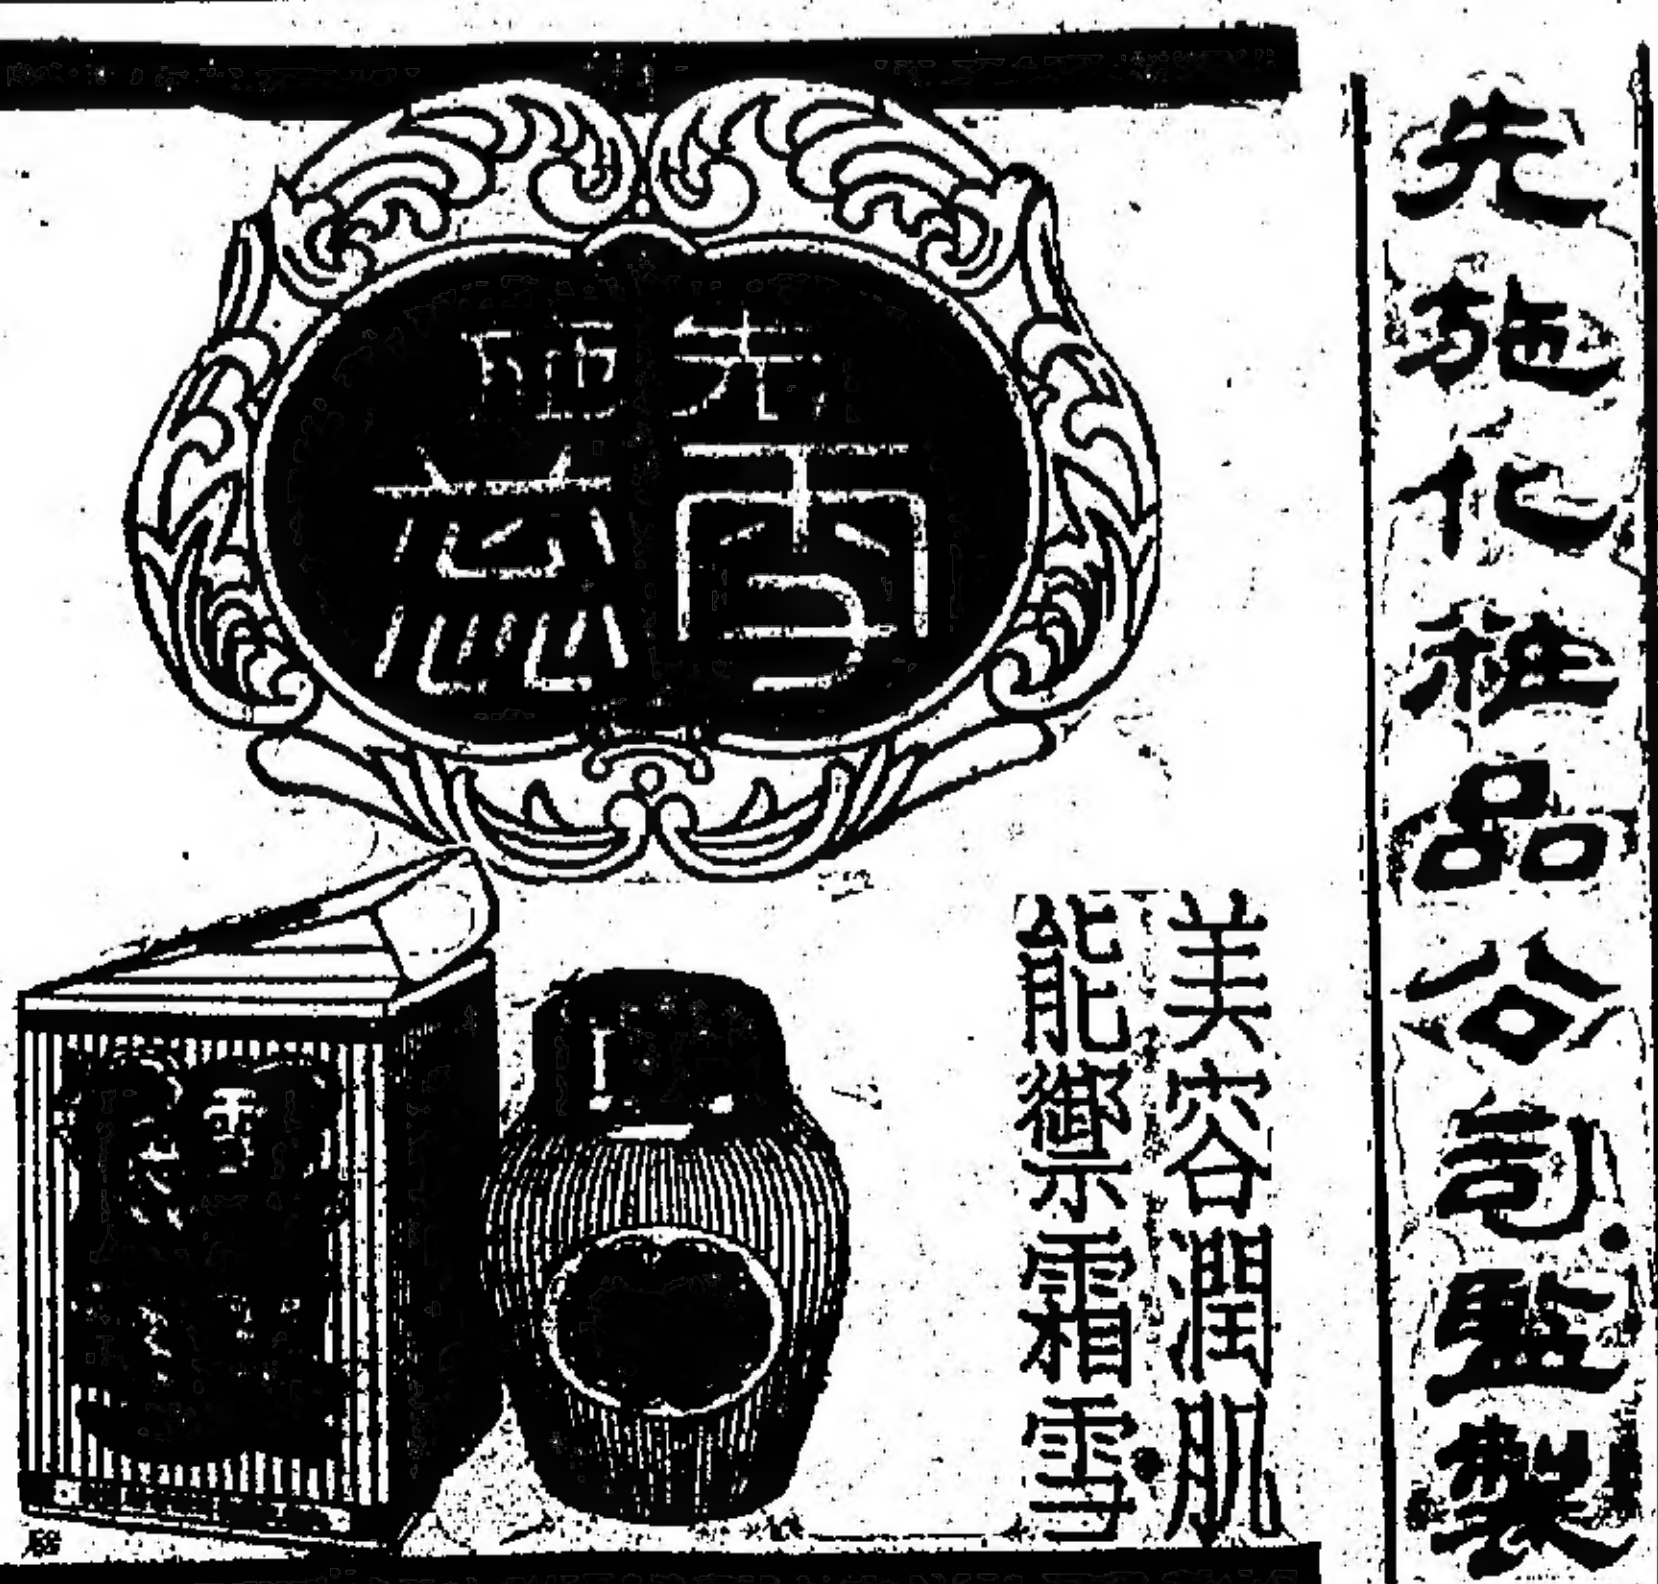 先施化粧品公司監製
先施
雪蕊
美容潤肌
能禦霜雪